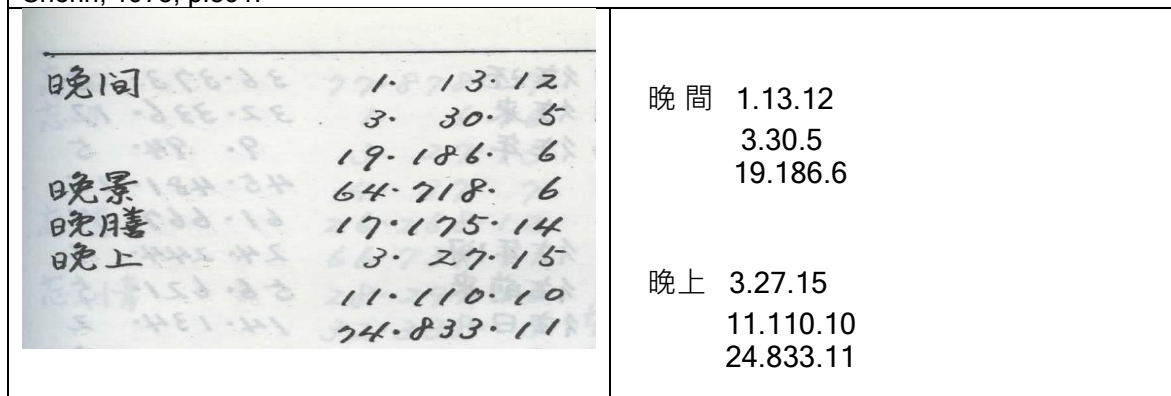 晚间 1. 13. 12
3. 30. 5
19. 186. 6
晚景 64. 718. 6
晚膳 17. 175. 14
晚上 3. 27. 15
11. 110. 10
74. 833. 11
晚 間 1.13.12
3.30.5
19.186.6
晚上 3.27.15
11.110.10
24.833.11